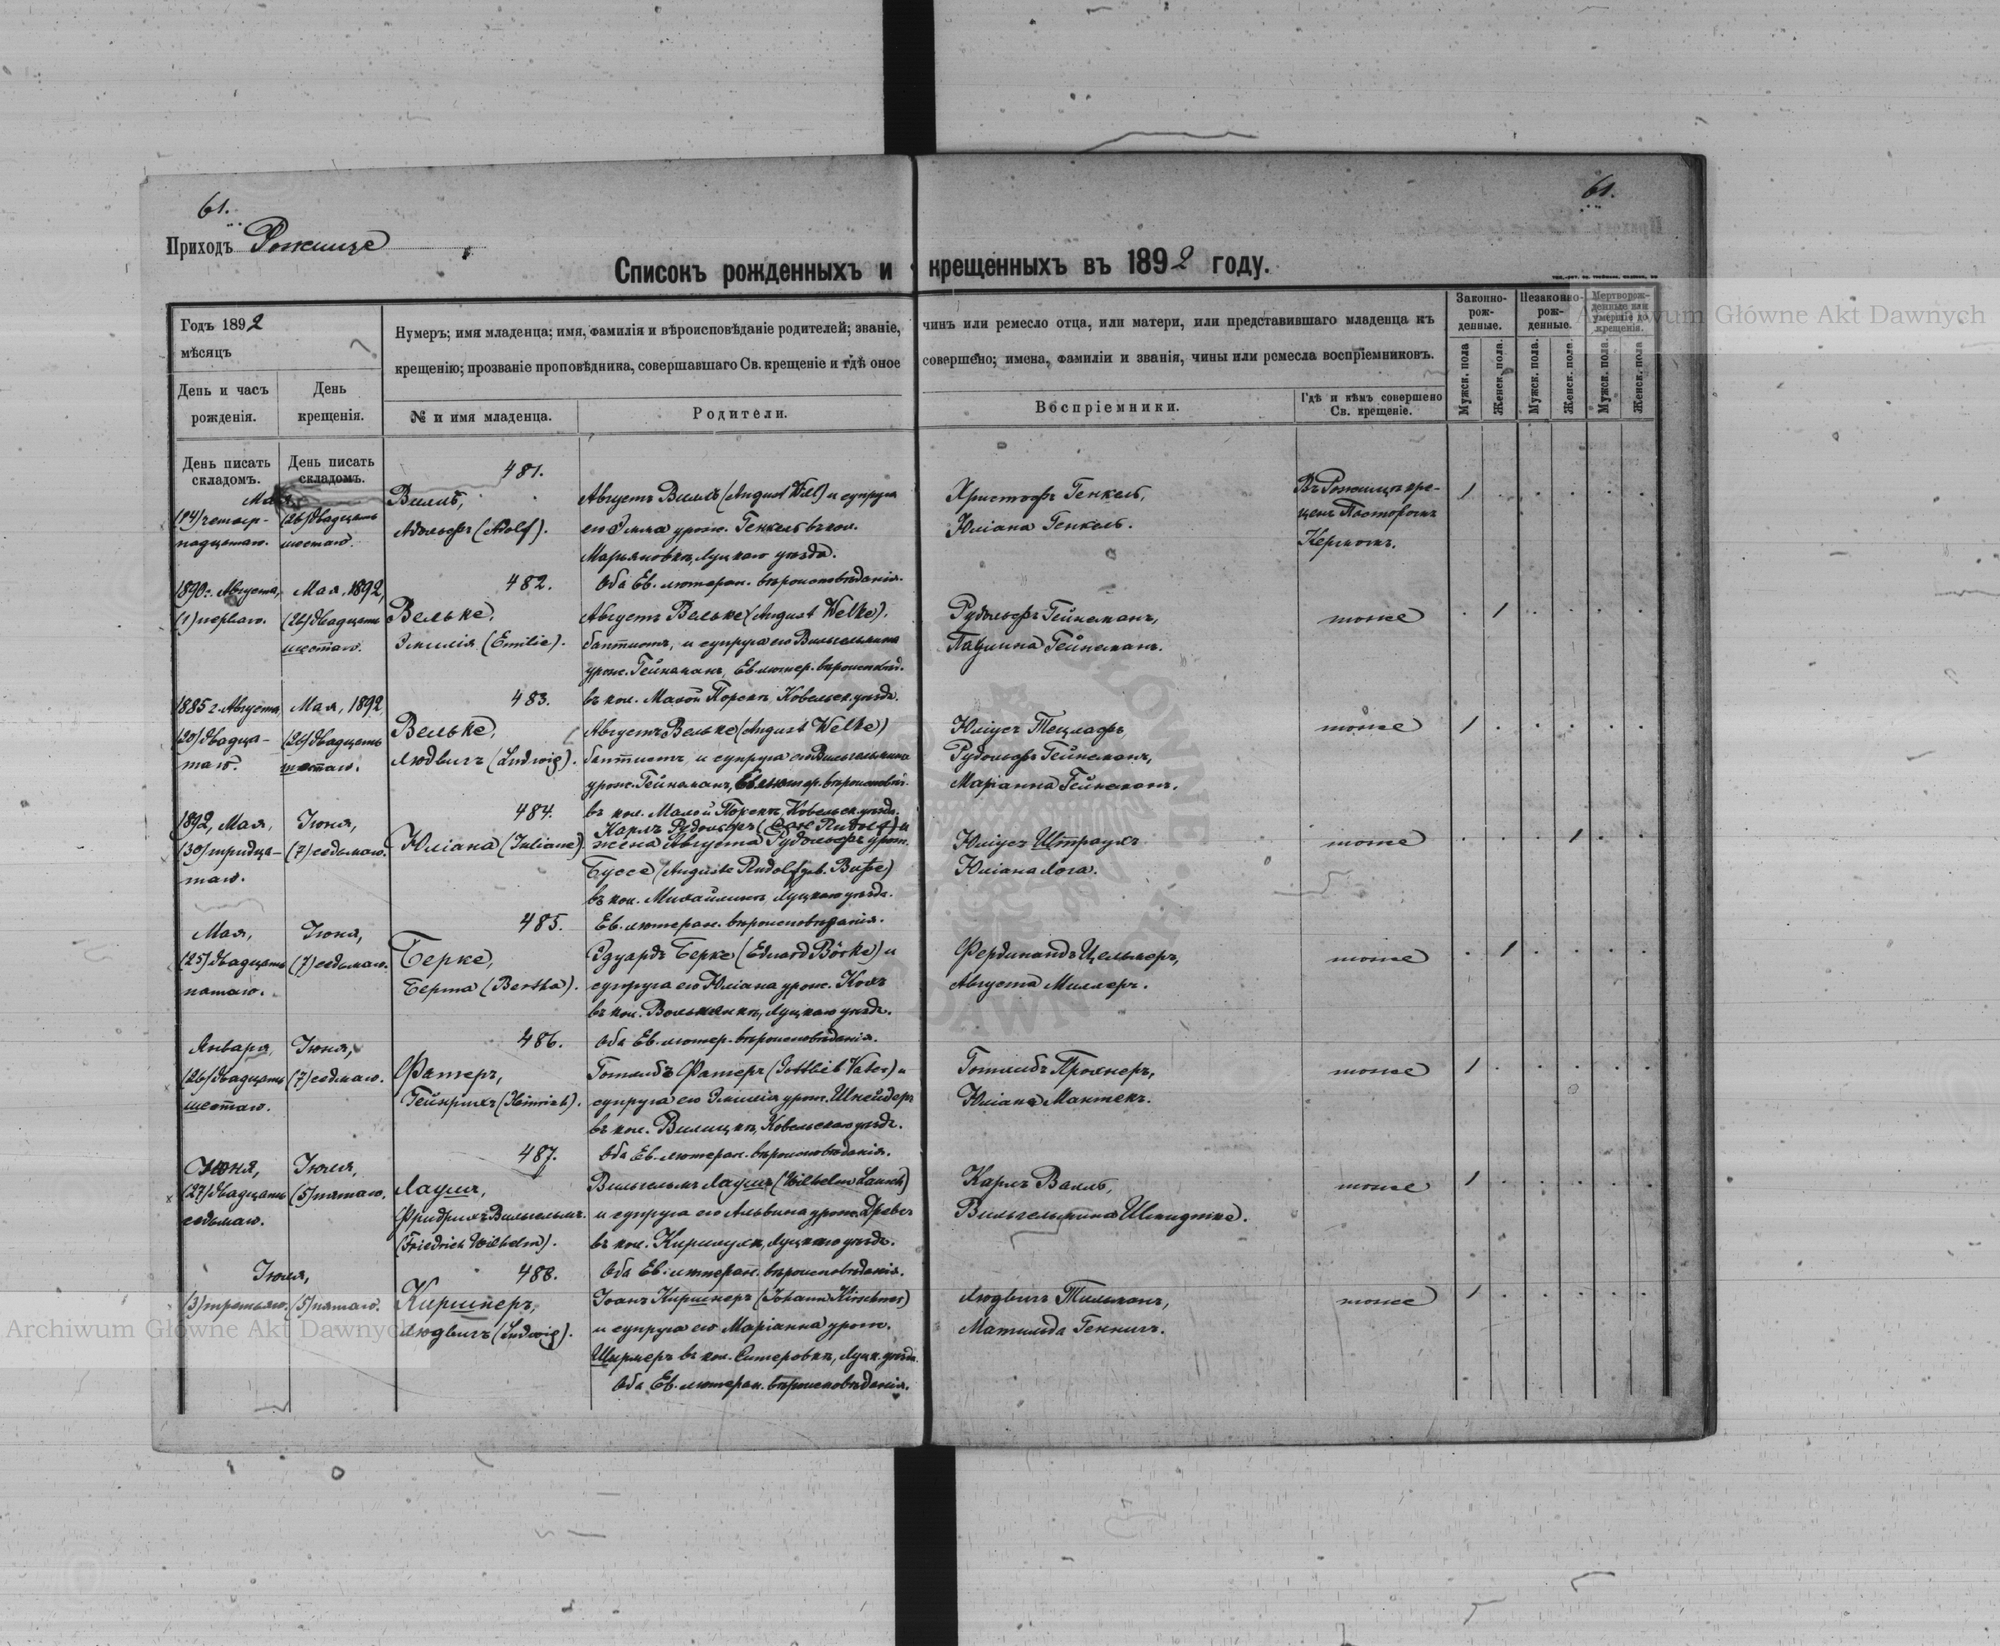 61.
61.
Приходъ Рожище
Списокъ рожденныхъ и крещенныхъ въ 1892 году.
Годъ 1892
мѣсяцъ
День и часъ рожденія.
День крещенія.
Нумеръ; имя младенца; имя, фамилія и вѣроисповѣданіе родителей; званіе, чинъ или ремесло отца, или матери, или представившаго младенца къ
крещенію; прозваніе проповѣдника, совершавшаго Св. крещеніе и гдѣ оное совершено; имена, фамиліи и званія, чины или ремесла воспріемниковъ.
№ и имя младенца.
Родители.
Воспріемники.
Гдѣ и кѣмъ совершено Св. крещеніе.
Законно-рож-денные.
Незаконно-рож-денные.
Мертворож-денные или умершіе до крещенія.
Мужск. пола
Женск. пола.
Мужск. пола.
Женск. пола.
Мужск. пола.
Женск. пола
День писать складомъ.
День писать складомъ.
481.
Мая
(14) четыр-
надцатаго.
(26) двадцать
шестаго.
Вилль,
Адольфъ (Adolf).
Августъ Вилль (August Will) и супруга
его Эмма урож. Генкель въ кол.
Марьяновкѣ, Луцкаго уѣзда.
Оба Ев. лютеран. вѣроисповѣданія.
Христофъ Генкель,
Юліана Генкель.
Въ Рожищѣ кре-
щенъ Пасторомъ
Кермомъ.
1
482.
1890 г. Августа,
(1) перваго.
Мая, 1892,
(26) двадцать
шестаго.
Вельке,
Эмилія (Emilie).
Августъ Вельке (August Welke),
баптистъ, и супруга его Вильгельмина
урож. Гейнеманъ, Ев. лютер. вѣроисповѣд.
въ кол. Малой Порскъ, Ковельск. уѣзда.
Рудольфъ Гейнеманъ,
Паулина Гейнеманъ.
тоже
1
483.
1885 г. Августа,
(20) двадца-
таго.
Мая, 1892
(26) двадцать
шестаго.
Вельке,
Людвигъ (Ludwig).
Августъ Вельке (August Welke)
баптистъ, и супруга его Вильгельмина
урож. Гейнеманъ, Ев. лютер. вѣроисповѣд.
въ кол. Малой Порскъ, Ковельск. уѣзда.
Юліусъ Тецлафъ,
Рудольфъ Гейнеманъ,
Маріанна Гейнеманъ.
тоже
1
484.
1892, Мая,
(30) тридца-
таго.
Іюня,
(7) седьмаго.
Юліана (Juliane).
Карлъ Рудольфъ (Carl Rudolf) и
жена Августа Рудольфъ урож.
Буссе (Auguste Rudolf geb. Buße)
въ кол. Михайлинѣ, Луцкаго уѣзда.
Ев. лютеран. вѣроисповѣданія.
Юліусъ Штраухъ
Юліана Лога.
тоже
1
485.
Мая,
(25) двадцать
пятаго.
Іюня,
(7) седьмаго.
Берке,
Берта (Bertha).
Эдуардъ Берке (Eduard Börke) и
супруга его Юліана урож. Кохъ
въ кол. Волнянкѣ, Луцкаго уѣзда.
Оба Ев. лютер. вѣроисповѣданія.
Фердинандъ Цельмеръ,
Августа Миллеръ.
тоже
1
486.
Января,
(26) двадцать
шестаго.
Іюня,
(7) седмаго.
Фатеръ,
Гейнрихъ (Heinrich).
Готлибъ Фатеръ (Gottlieb Vater) и
супруга его Эмилія урож. Шнейдеръ
въ кол. Вилицкѣ, Ковельскаго уѣзда.
Оба Ев. лютеран. вѣроисповѣданія.
Готлибъ Проянеръ,
Юліана Мантекъ.
тоже
1
487.
Іюня,
(27) двадцать
седьмаго.
Іюля,
(5) пятаго.
Лаушъ,
Фридрихъ Вильгельмъ.
(Friedrich Wilhelm).
Вильгельмъ Лаушъ (Wilhelm Lausch)
и супруга его Альвина урож. Древсъ
въ кол. Киримукѣ, Луцкаго уѣзда.
Оба Ев. лютеран. вѣроисповѣданія.
Карлъ Валль,
Вильгельмина Шмидтке.
тоже
1
488.
Іюля,
(3) третьяго.
(5) пятаго.
Киршнеръ,
Людвигъ (Ludwig).
Іоанъ Киршнеръ (Johann Kirschner)
и супруга его Маріанна урож.
Ширмеръ въ кол. Ситеровкѣ, Луцк. уѣзда.
Оба Ев. лютеран. вѣроисповѣданія.
Людвигъ Тильманъ,
Матильда Геннигъ.
тоже
1
Archiwum Główne Akt Dawnych
Archiwum Główne Akt Dawnych